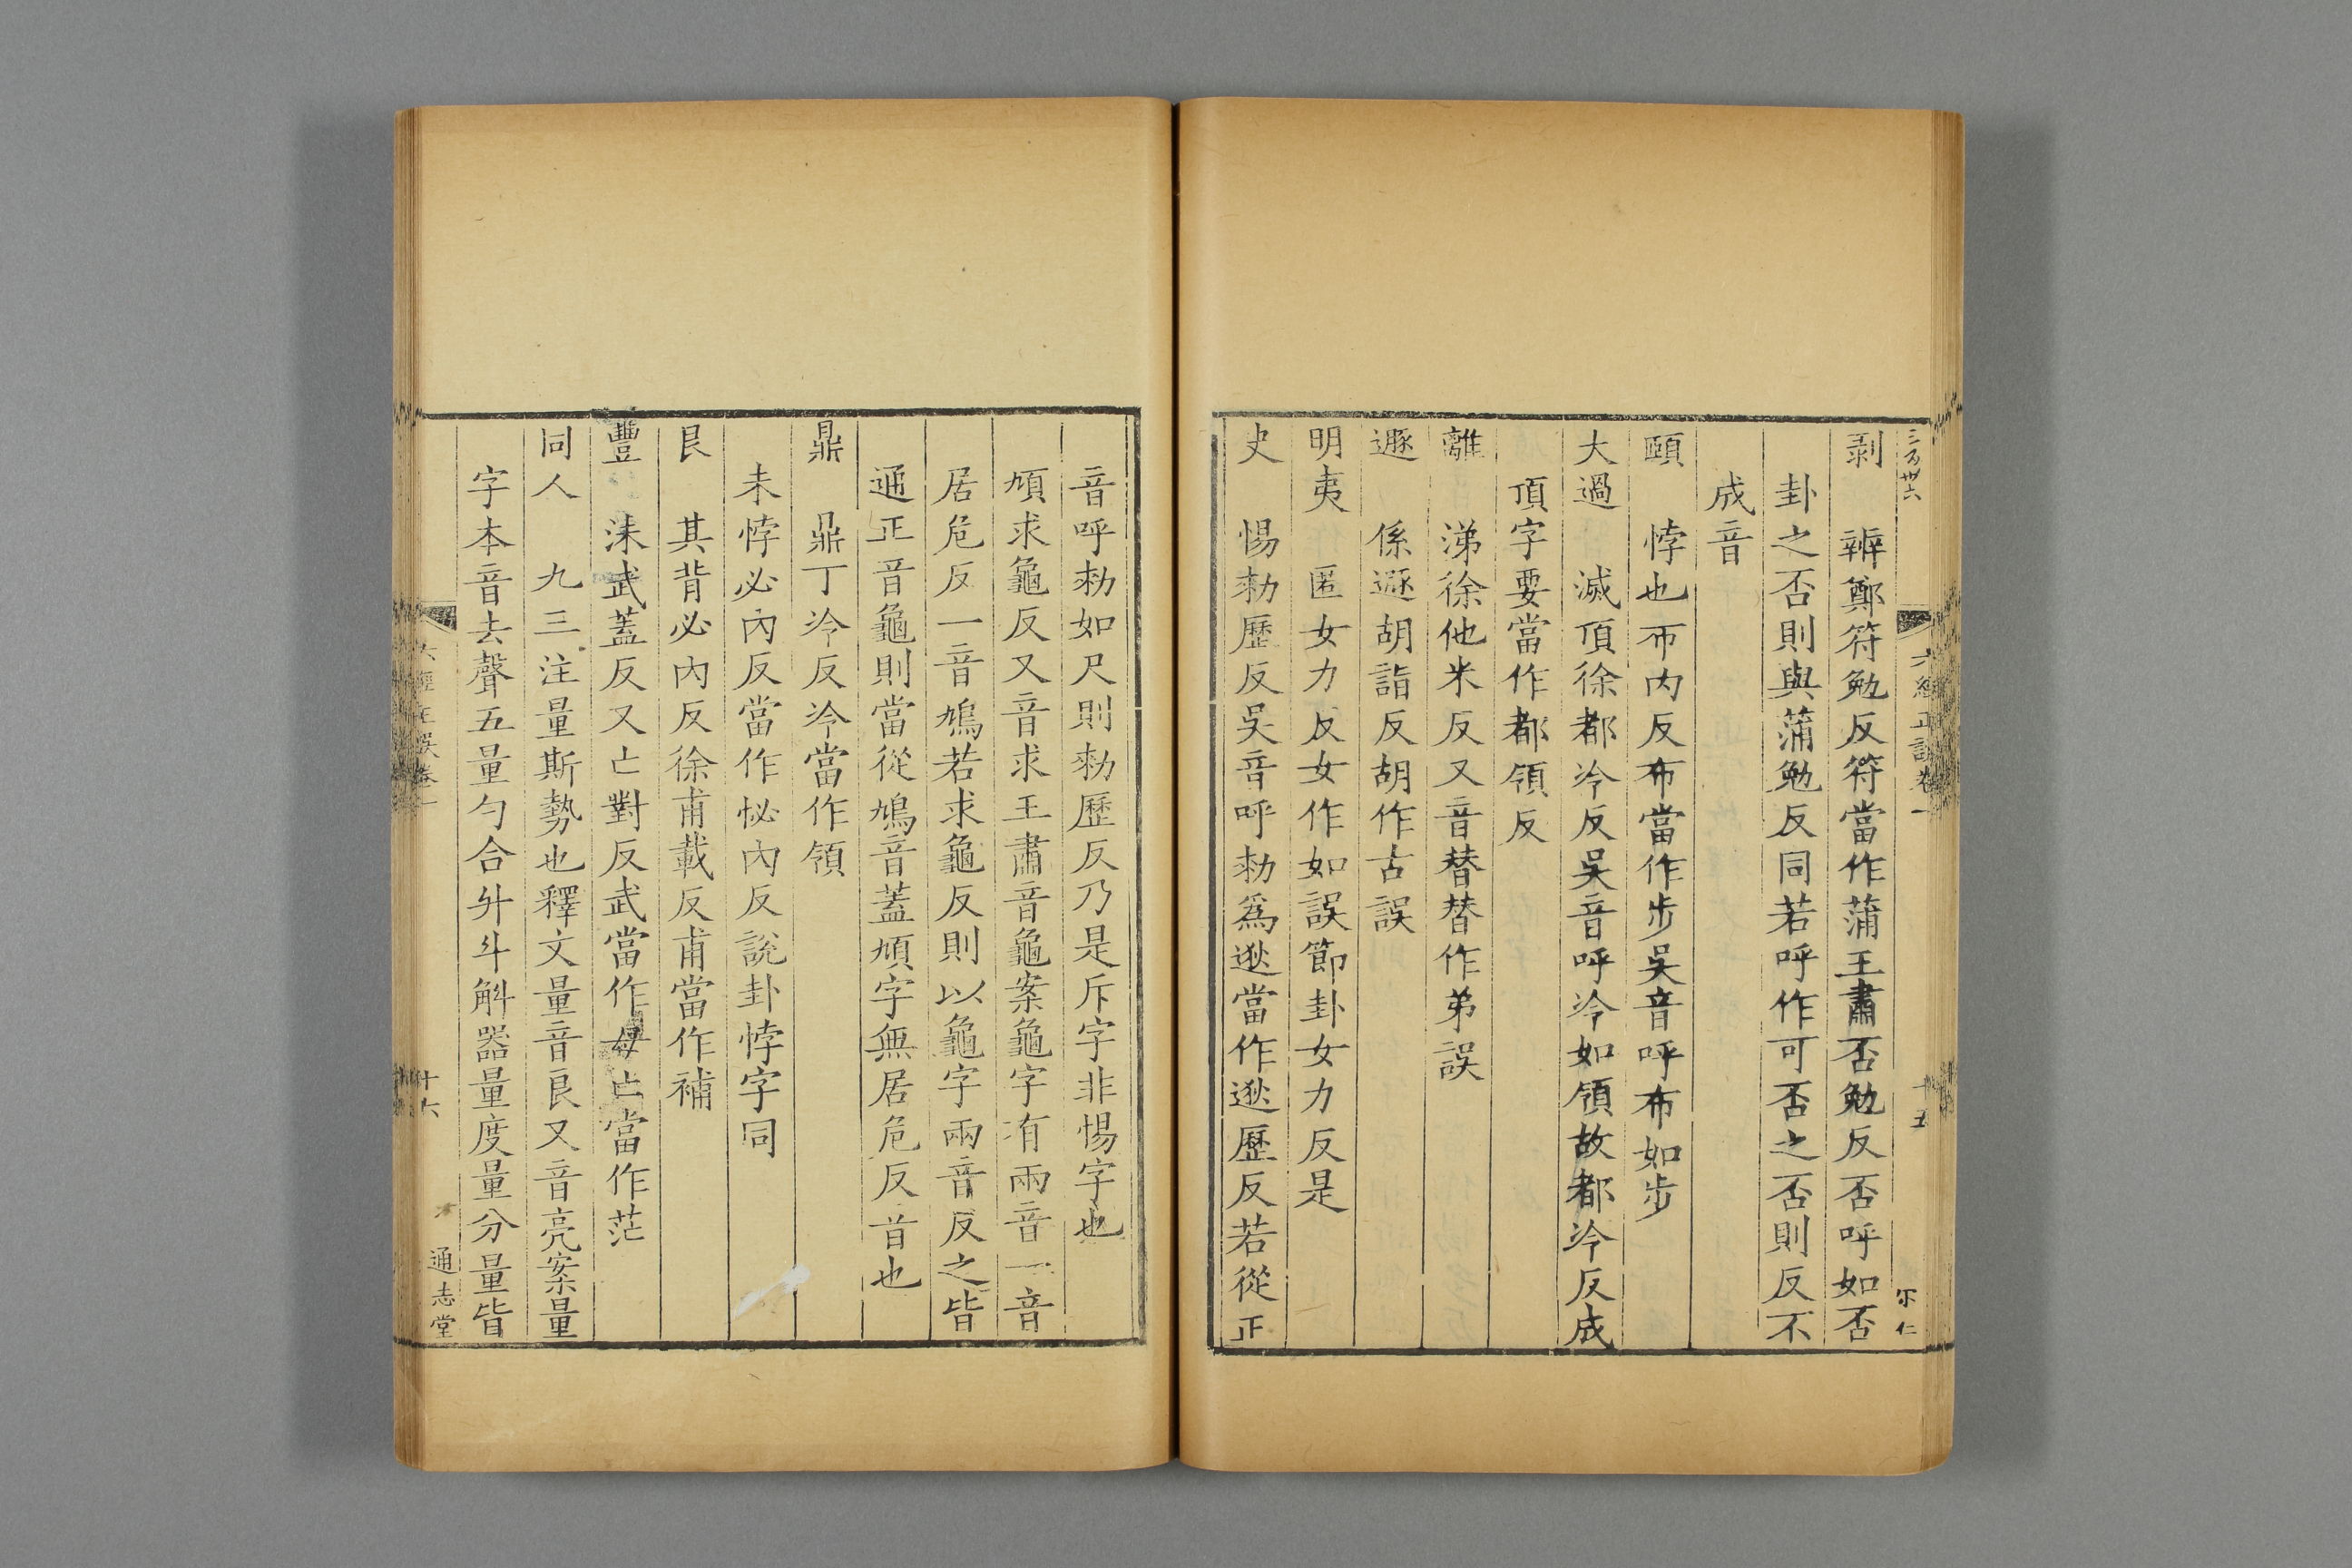 三百卅六
六經正誤卷一
十五
尔仁
剥　辨鄭符勉反符當作蒲王肅否勉反否呼如否
卦之否則與蒲勉反同若呼作可否之否則反不
成音
頤　悖也布内反布當作步吴音呼布如步
大過　滅頂徐都冷反吴音呼冷如領故都冷反成
頂字要當作都領反
離　涕徐他米反又音替替作弟誤
遯　係遯胡詣反胡作古誤
明夷　匿女力反女作如誤節卦女力反是
史　惕勑歷反吴音呼勑爲逖當作逖歷反若從正
音呼勑如尺則勑歷反乃是斥字非惕字也
頄求龜反又音求王肅音龜案龜字有兩音一音
居危反一音鳩若求龜反則以龜字兩音反之皆
通正音龜則當從鳩音蓋頄字無居危反首也
鼎　鼎丁冷反冷當作領
未悖必内反當作怭内反説卦悖字同
艮　其背必内反徐甫載反甫當作補
豐　沬武蓋反又亡對反武當作母亡當作茫
同人　九三注量斯勢也釋文量音良又音亮案量
字本音去聲五量勺合升斗斛器量度量分量皆
六經正誤卷一
十六
通志堂